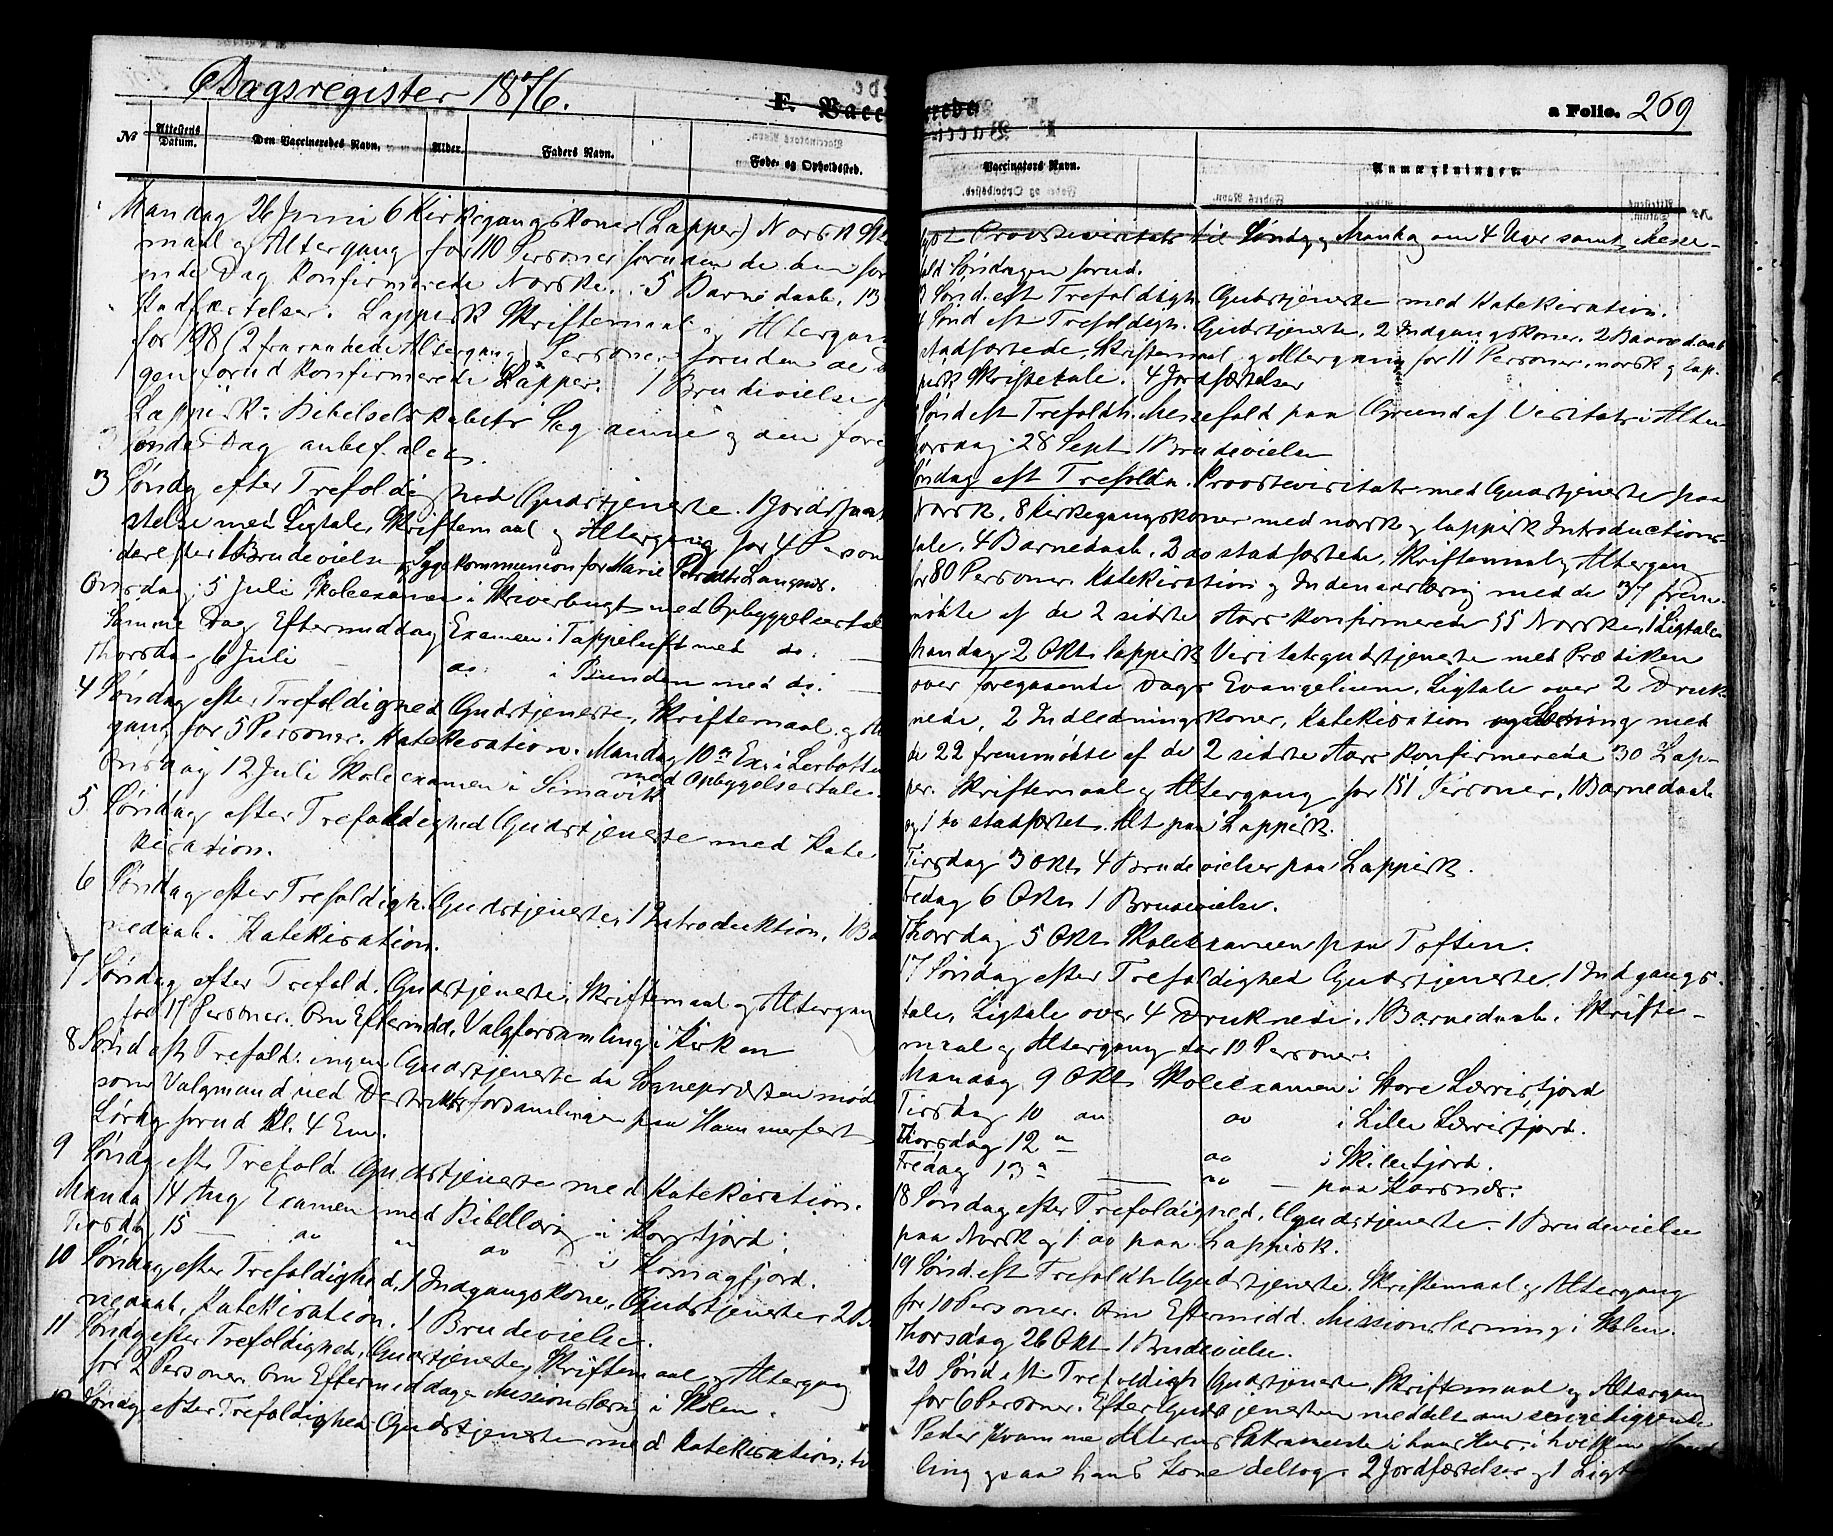 Dagsregister 1876.
F. Vacc
No Attestens Datum. Den Vaccineredes Navn. Alder. Faders Navn. Føde- og Opholdssted.
Mandag 26 Juni 6 Kirkegangskoner (Lapper) Norsk
maal og Altergang for 110 Personer foruden de
Dag Konfirmerede Norske. 5 Barnedaab, 13
Stadfæstelser. Lappisk Skriftemaal og Altergan
for 198 (2 Altergang) Personer foruden de
gen forud Konfirmerede Lapper. 1 Brudevielse
Lappisk. Bibelselskabets Sag denne og den fore
Dag anbefalet.
3 Søndg efter Trefoldighed Gudstjeneste. 1 Jordfæ
stelse med Ligtale, Skriftemaal og Altergang for 4 Person
derefter 1 Brudevielse og Sygekommunion for Marie
Onsdag 5 Juli Skoleexamen i Skiverbugt med Opbyggelsestal
Samme Dag Eftermiddag Examen i Tappeluft med do.
Thorsdag 6 Juli — do: i Bunden med do.
4 Søndag efter Trefoldighed Gudstjeneste, Skriftemaal og Al
gang for 5 Personer. Katekisation. Mandag 10de Ex. i Lerbotten
med Opbyggelsestale.
Onsdag 12 Juli Skoleexamen i Simavik
5 Søndag efter Trefoldighed Gudstjeneste med Kate
kisation.
6 Søndag efter Trefoldigh. Gudstjeneste, 1 Introduktion, 1 Ba
nedaab. Katekisation.
7 Søndag efter Trefold. Gudstjeneste, Skriftemaal og Altergang
for 17 Personer. Om Eftermidd. Valgforsamling i Kirken
8 Sønd eft Trefold: ingen Gudstjeneste da Sognepræsten mød
som Valgmand ved Destriktsforsamlingen paa Hammerfest
Lørdg forud Kl. 4 Em.
9 Søndg eft Trefold Gudstjeneste med Katekisation.
Mandag 14 Aug Examen med Bibellæsng i Korsfjord.
Tirsdag 15 — do " do — i Komagfjord.
10 Søndag efter Trefoldighed, 1 Indgangskone, Gudstjeneste 2 B
nedaab, Katekisation. 1 Brudevielse.
11 Søndg efter Trefoldighed, Gudstjeneste, Skriftemaal og Altergang
for 2 Personer. Om Eftermiddagen Missionslæsng i Skolen.
12 Søndag efter Trefoldighed Gudstjeneste med Katekisation,
a Folio. 269
Vaccinators Navn. Anmærkninger
Provstevisitats til Søndag og Mandag om 4 Uger samt Messe-
fald Søndagen forud.
Sønd. eft Trefoldigh. Gudstjeneste med Katekisation.
Sønd eft Trefoldigh. Gudstjeneste, 2 Indgangskoner. 2 Barnedaab
stadfæstede, Skriftemaal og Altergang for 11 Personer, norsk og lap-
pisk Skriftetale. 4 Jordfæstelser
Sønd eft Trefoldh. Messefald paa Grund af Visitats i Alten
Torsdag 28 Sept 1 Brudevielse
Søndag eft Trefoldh. Provstevisitats med Gudstjeneste paa
Norsk, 8 Kirkegangskoner med norsk og lappisk Introductions
tale. 4 Barnedaab, 2 do stadfæstede, Skriftemaal og Altergang
for 80 Personer. Katekisation og Indenadlæsng med de 37 frem-
mødte af de 2 sidste Aars Konfirmerede 55 Norske, 1 Ligtale
Mandag 2 Okt. lappisk Visitatsgudstjeneste med Prædiken
over foregaaende Dags Evangelium, Ligtale over 2 Druk
nede, 2 Indledningskoner, Katekisation og Læsning med
de 22 fremmødte af de 2 sidste Aars Konfirmerede 30 Lap-
per. Skriftemaal og Altergang for 151 Personer, 1 Barnedaab
og 1 do stadfæstet. Alt paa Lappisk.
Tirsdag 3 Okt 4 Brudevielser paa Lappisk.
Fredag 6 Okt. 1 Brudevielse.
Thorsdag 5 Okt Skoleexamen paa Toften.
17 Søndag efter Trefoldighed Gudstjeneste. 1 Indgangs-
tale, Ligtale over 4 Druknede. 1 Barnedaab. Skrifte-
maal og Altergang for 19 Personer.
Mandag 9 Okt Skoleexamen i Store Lærrisfjord
Tirsdag 10 do do i Lille Lærrisfjord.
Thorsdag 12 " do i Skillefjord.
Fredag 13 " — do — paa Korsnes.
18 Søndag efter Trefoldighed, Gudstjeneste. 1 Brudevielse
paa Norsk og 1 do paa Lappisk.
19 Sønd. eft Trefoldh Gudstjeneste. Skriftemaal og Altergang
for 10 Personer. Om Eftermidd. Missionslæsning i Skolen.
Thorsdag 26 Okt 1 Brudevielse.
20 Sønd eft Trefoldigh Gudstjeneste. Skriftemaal og Altergang
for 6 Personer. Efter Gudstjenesten meddelt den sengeliggende
Peder Kvamme Alterens Sakramente i hans Hus, i hvilken
ling ogsaa hans Kone deltog. 2 Jordfæstelser og 1 Ligt